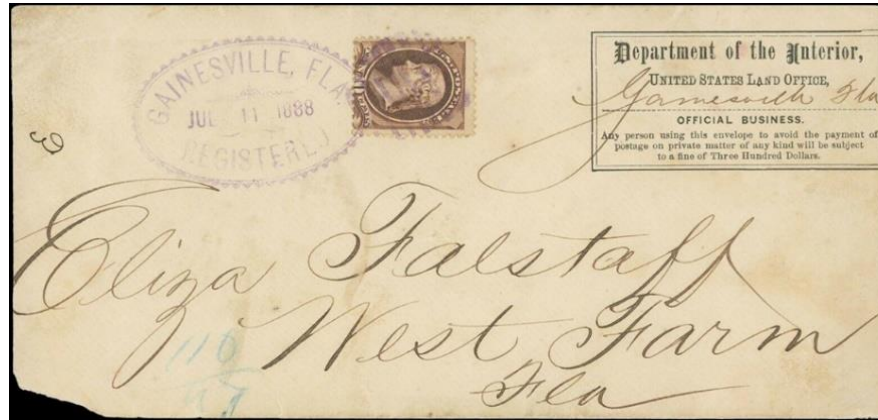 GAINESVILLE, FLA.
JUL 11 1888
REGISTERED
Department of the Interior,
UNITED STATES LAND OFFICE,
Gainesville Fla
OFFICIAL BUSINESS.
Any person using this envelope to avoid the payment of
postage on private matter of any kind will be subject
to a fine of Three Hundred Dollars.
3
Eliza Falstaff
West Farm
Fla
110